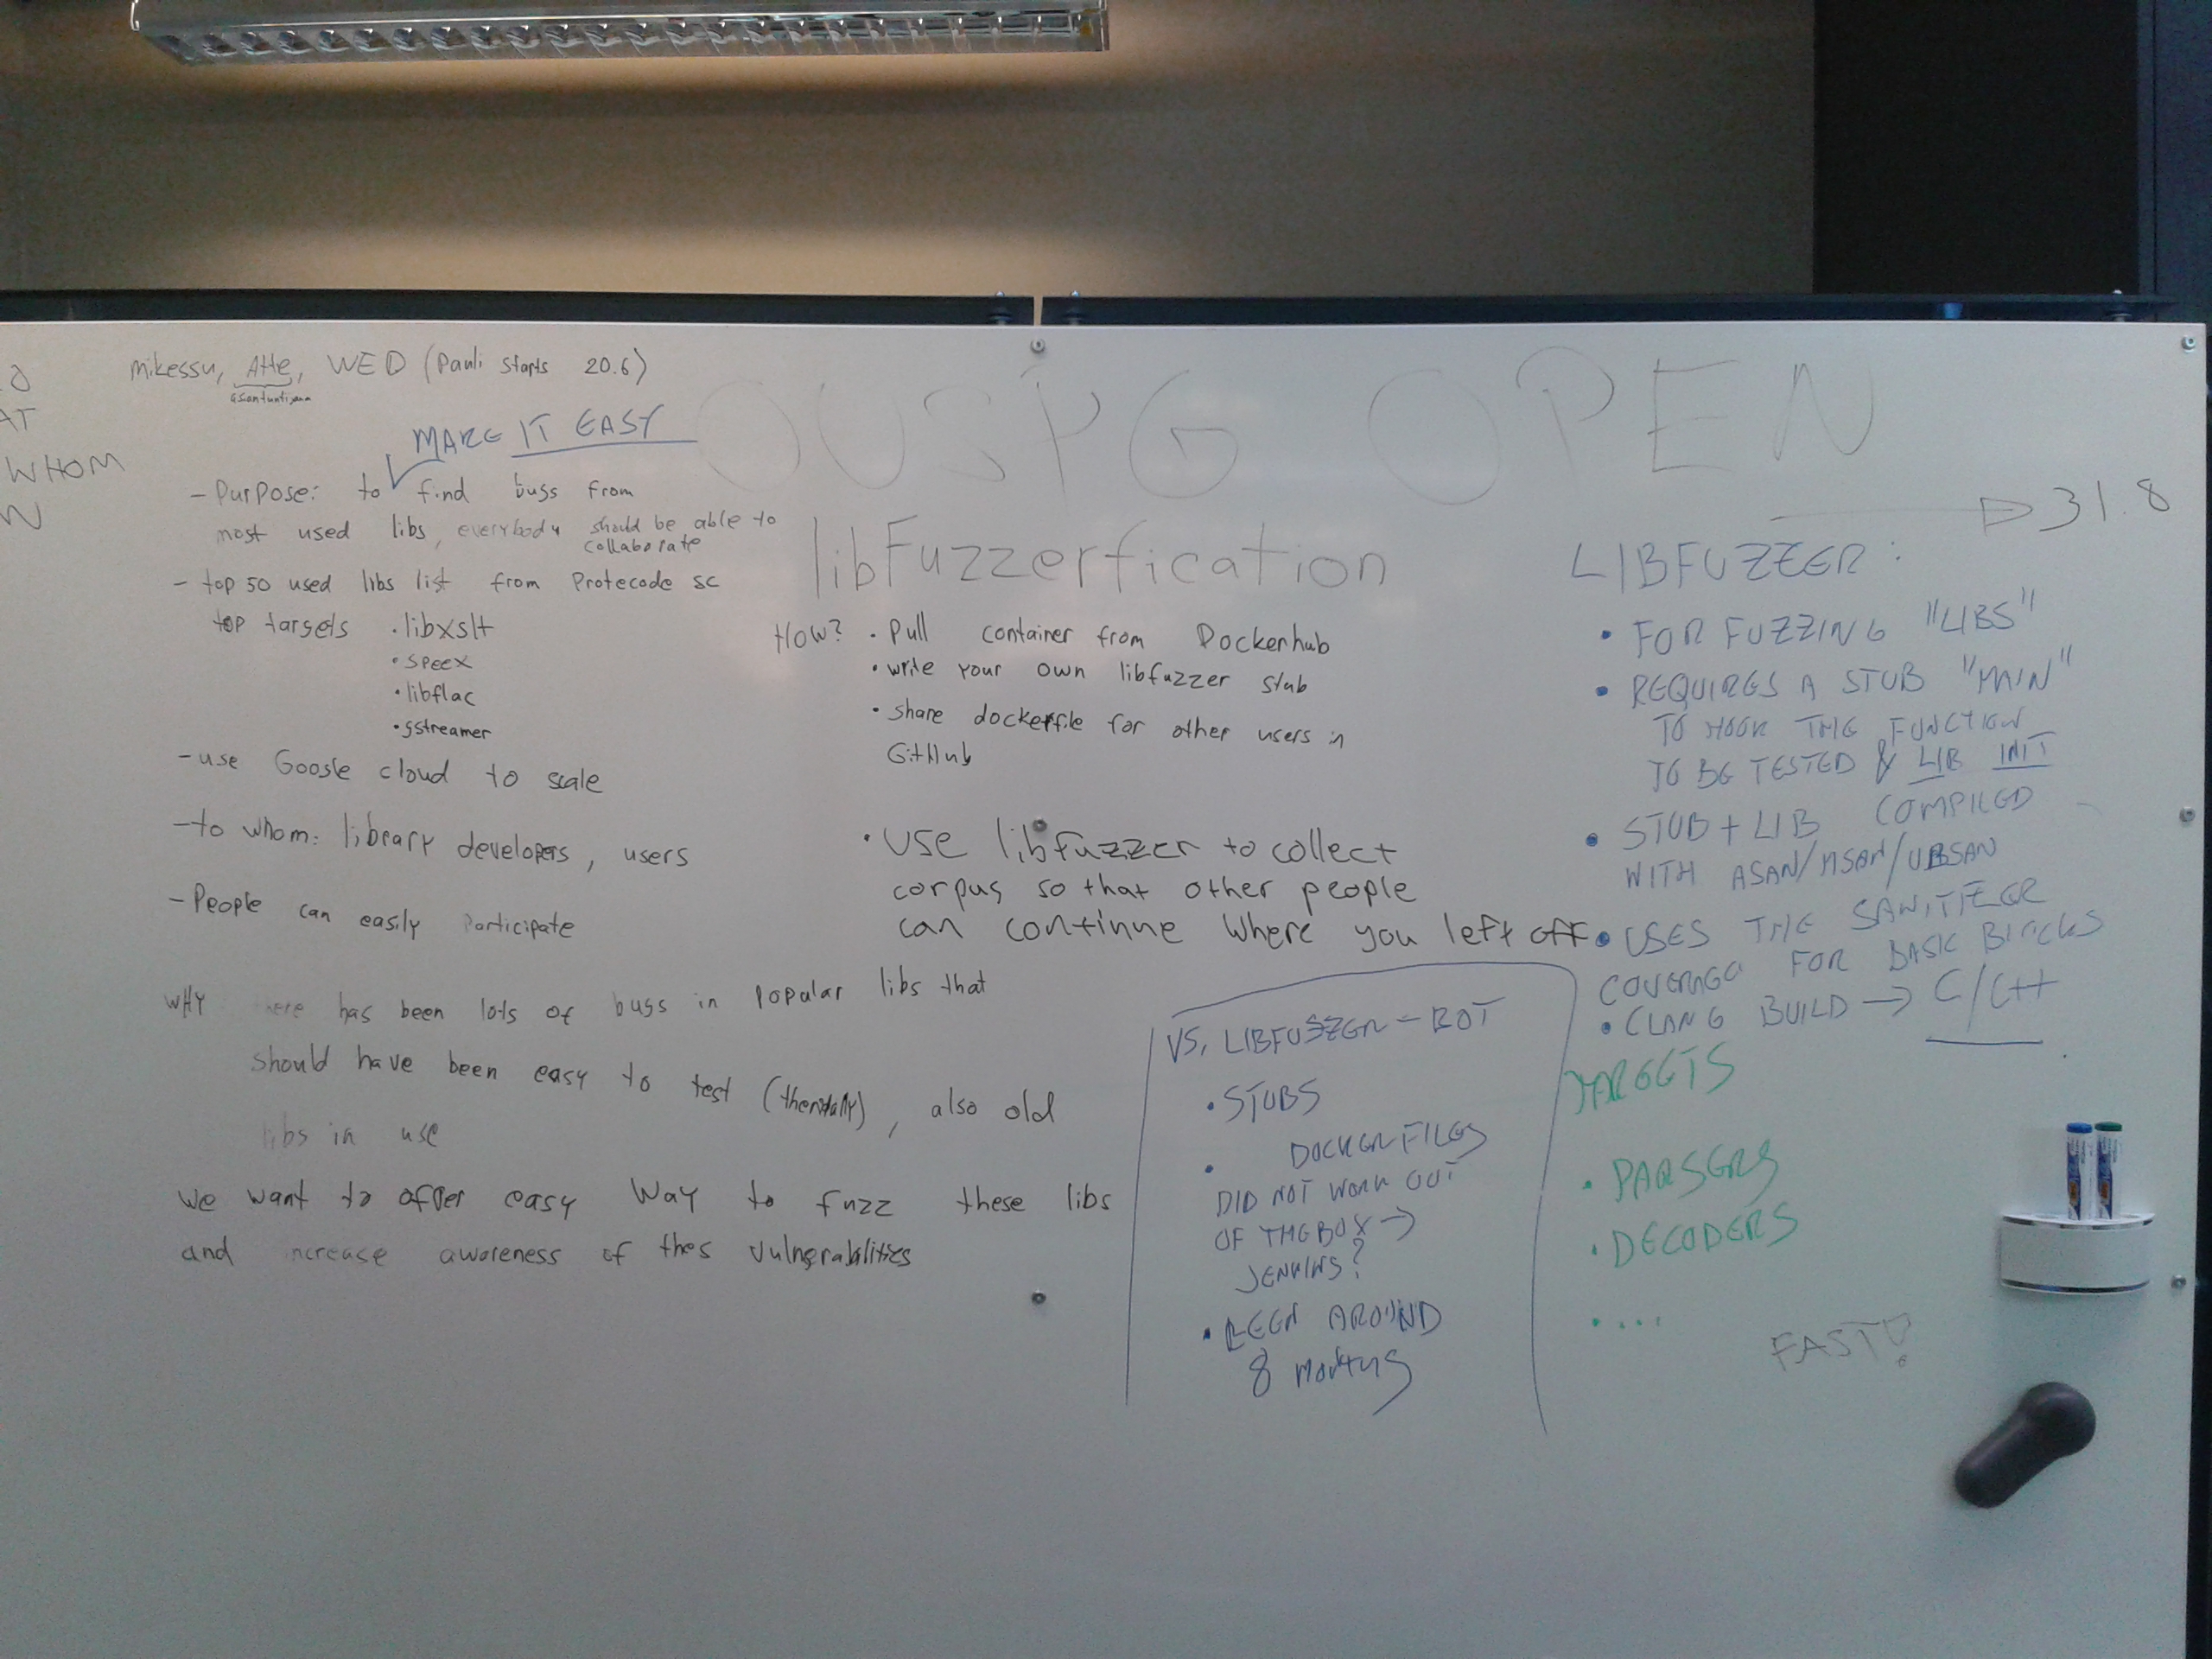 O
AT
WHOM
N
Mikessu, Atte, WED (Pauli starts 20.6)
MAKE IT EASY
OUSPG OPEN
→ 31.8
- Purpose: to find bugs from
most used libs, everybody should be able to
collaborate
- top 50 used libs list from Protecode SC
top targets • libxslt
• speex
• libflac
• gstreamer
- use Google cloud to scale
- to whom: library developers, users
- People can easily participate
WHY there has been lots of bugs in popular libs that
should have been easy to test , also old
libs in use
We want to offer easy way to fuzz these libs
and increase awareness of thes vulnerabilities
libFuzzerfication
How? • Pull container from Dockerhub
• write your own libfuzzer stub
• share dockerfile for other users in
GitHub
• Use libfuzzer to collect
corpus so that other people
can continue where you left off
VS. LIBFUSZER-BOT
• STUBS
• DOCKERFILES
DID NOT WORK OUT
OF THE BOX →
JENKINS?
• BEEN AROUND
8 MONTHS
LIBFUZZER:
• FOR FUZZING "LIBS"
• REQUIRES A STUB "MAIN"
TO HOOK THE FUNCTION
TO BE TESTED & LIB INIT
• STUB + LIB COMPILED
WITH ASAN/MSAN/UBSAN
• USES THE SANITIZER
COVERAGE FOR BASIC BLOCKS
• CLANG BUILD → C/C++
TARGETS
• PARSERS
• DECODERS
• ...
FAST!